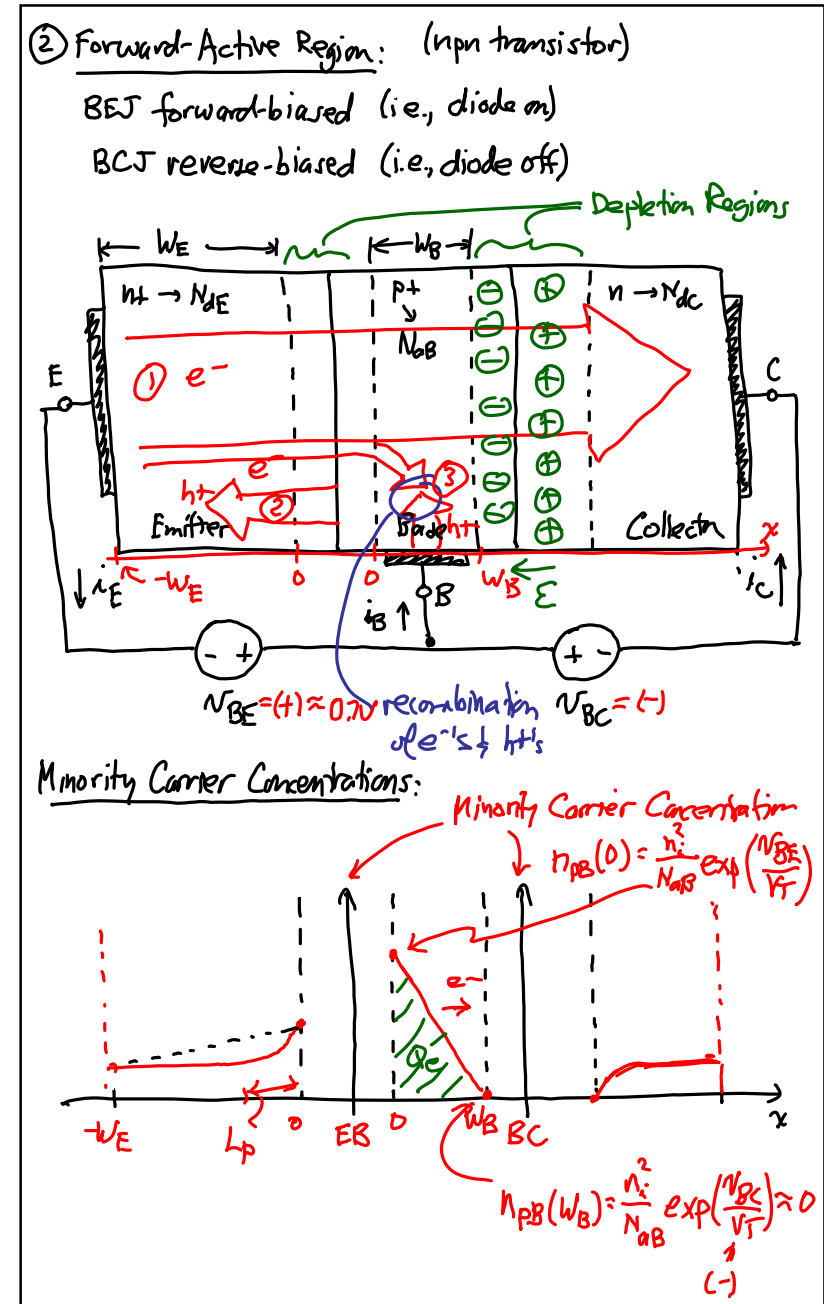 ② Forward-Active Region: (npn transistor)
BEJ forward-biased (i.e., diode on)
BCJ reverse-biased (i.e., diode off)
Depletion Regions
W_E
W_B
n+ → N_dE
p+
↓
N_aB
n → N_dC
① e⁻
E
C
e⁻
③
h+
②
h+
Emitter
Base
Collector
x
-W_E
0
0
W_B
ε
i_E
i_B
B
i_C
- +
+ -
v_BE = (+) ≈ 0.7V
recombination
of e⁻'s & h+'s
v_BC = (-)
Minority Carrier Concentrations:
Minority Carrier Concentration
n_pB(0) = n_i²/N_aB exp(v_BE/V_T)
e⁻
Q_e
-W_E
L_p
0
EB
0
W_B
BC
x
n_pB(W_B) = n_i²/N_aB exp(v_BC/V_T) ≈ 0
(-)